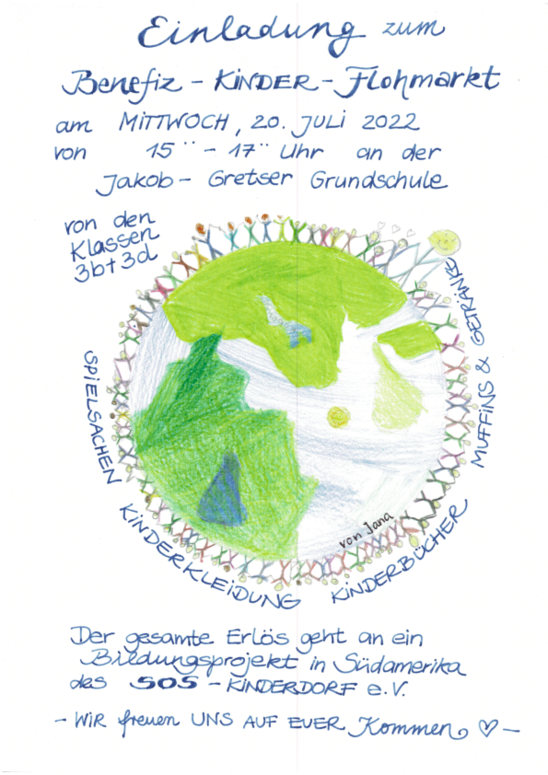 Einladung zum
Benefiz - KINDER - Flohmarkt
am MITTWOCH, 20. JULI 2022
von 15°° - 17°° Uhr an der
Jakob - Gretser Grundschule
von den
Klassen
3b + 3d
SPIELSACHEN
KINDERKLEIDUNG
KINDERBÜCHER
MUFFINS & GETRÄNKE
von Jana
Der gesamte Erlös geht an ein
Bildungsprojekt in Südamerika
des SOS - KINDERDORF e.V.
- WIR freuen UNS AUF EUER Kommen ♡ -